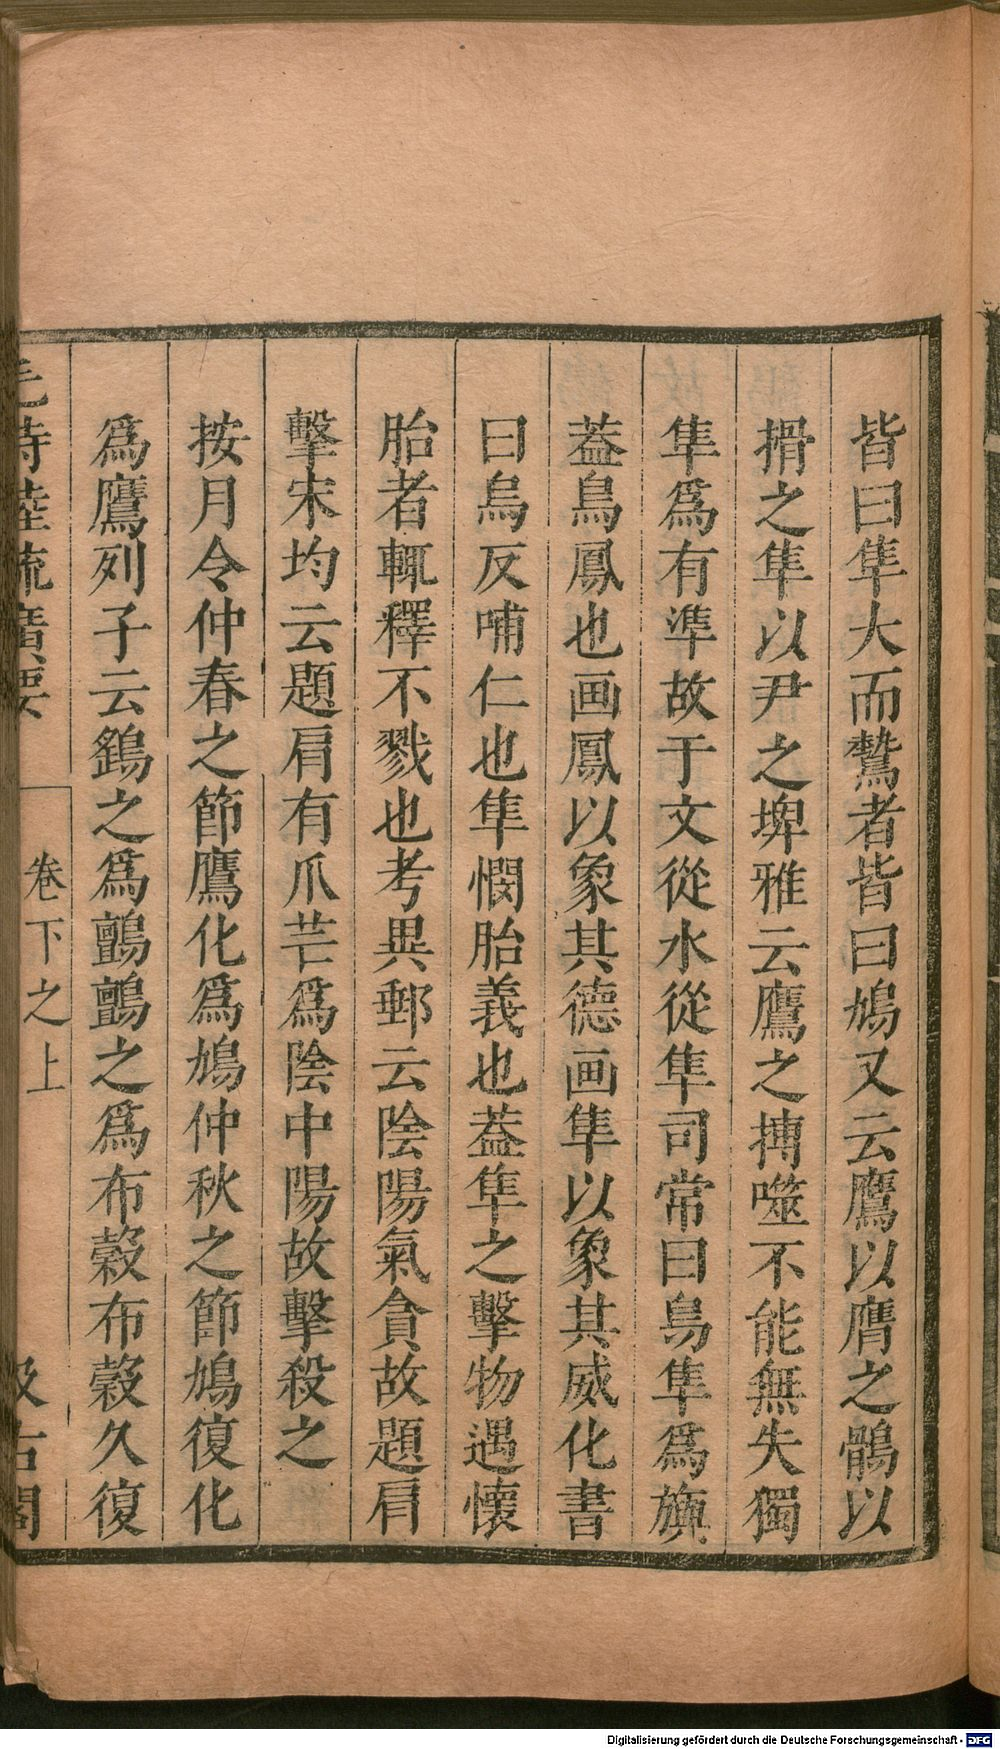 皆曰隼大而鷙者皆曰鳩又云鷹以膺之鶻以
搰之隼以尹之埤雅云鷹之摶噬不能無失獨
隼爲有準故于文從水從隼司常曰鳥隼爲旟
葢鳥鳳也画鳳以象其德画隼以象其威化書
曰烏反哺仁也隼憫胎義也葢隼之擊物遇懷
胎者輒釋不戮也考異郵云陰陽氣貪故題肩
擊宋均云題肩有爪芒爲陰中陽故擊殺之
按月令仲春之節鷹化爲鳩仲秋之節鳩復化
爲鷹列子云鷂之爲鸇鸇之爲布穀布穀久復
毛詩陸疏廣要 卷下之上 汲古閣
Digitalisierung gefördert durch die Deutsche Forschungsgemeinschaft - DFG